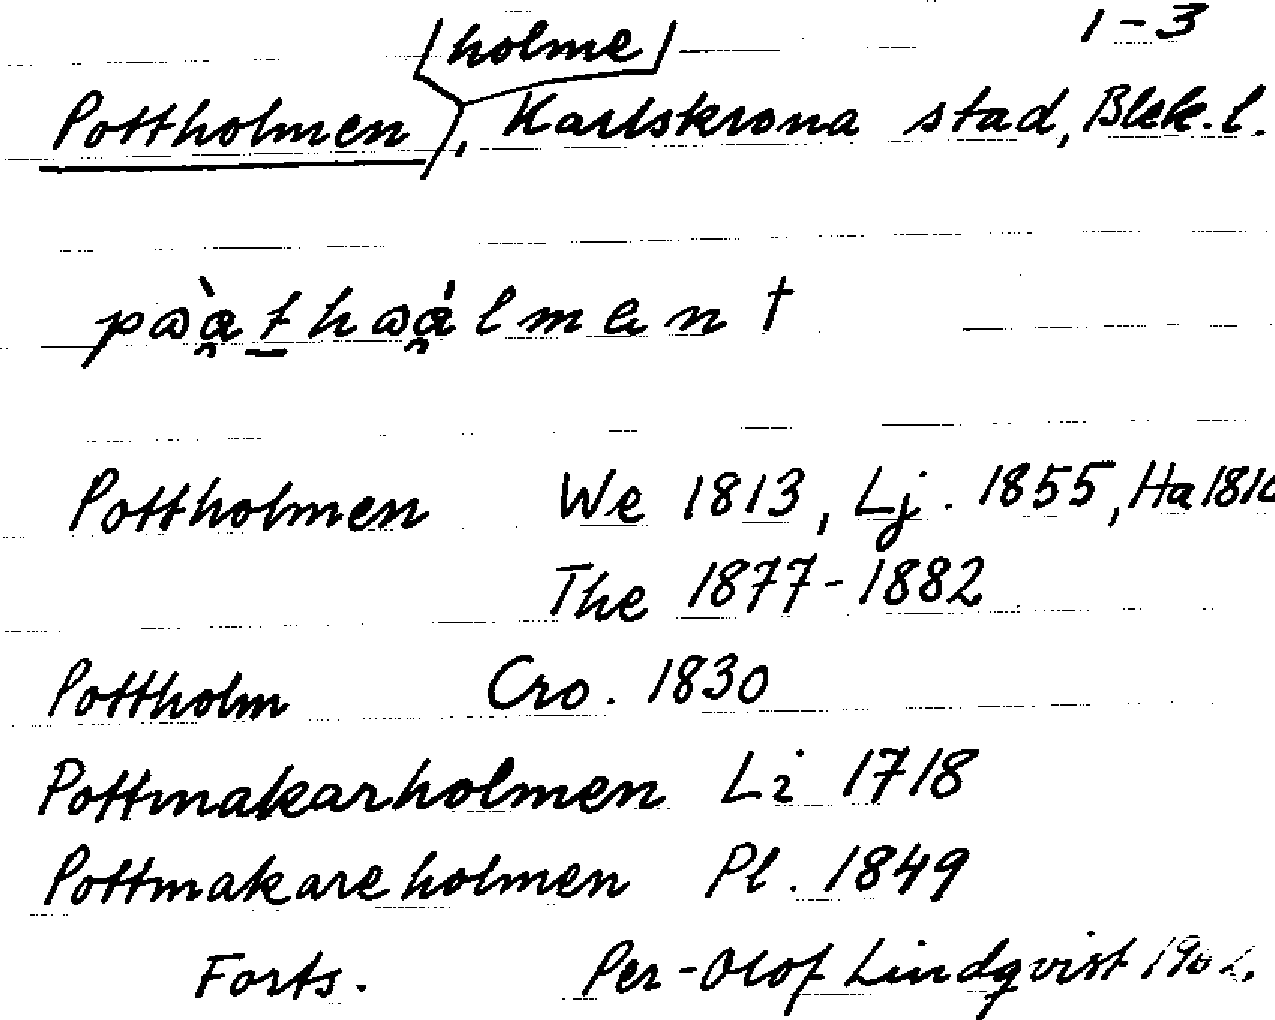 [holme] 1-3
Pottholmen, Karlskrona stad, Blek.l.
Pottholmen We 1813, Lj. 1855, Ha
The 1877-1882
Pottholm Cro. 1830
Pottmakarholmen Li 1718
Pottmakareholmen Pl. 1849
Forts. Per-Olof Lindqvist